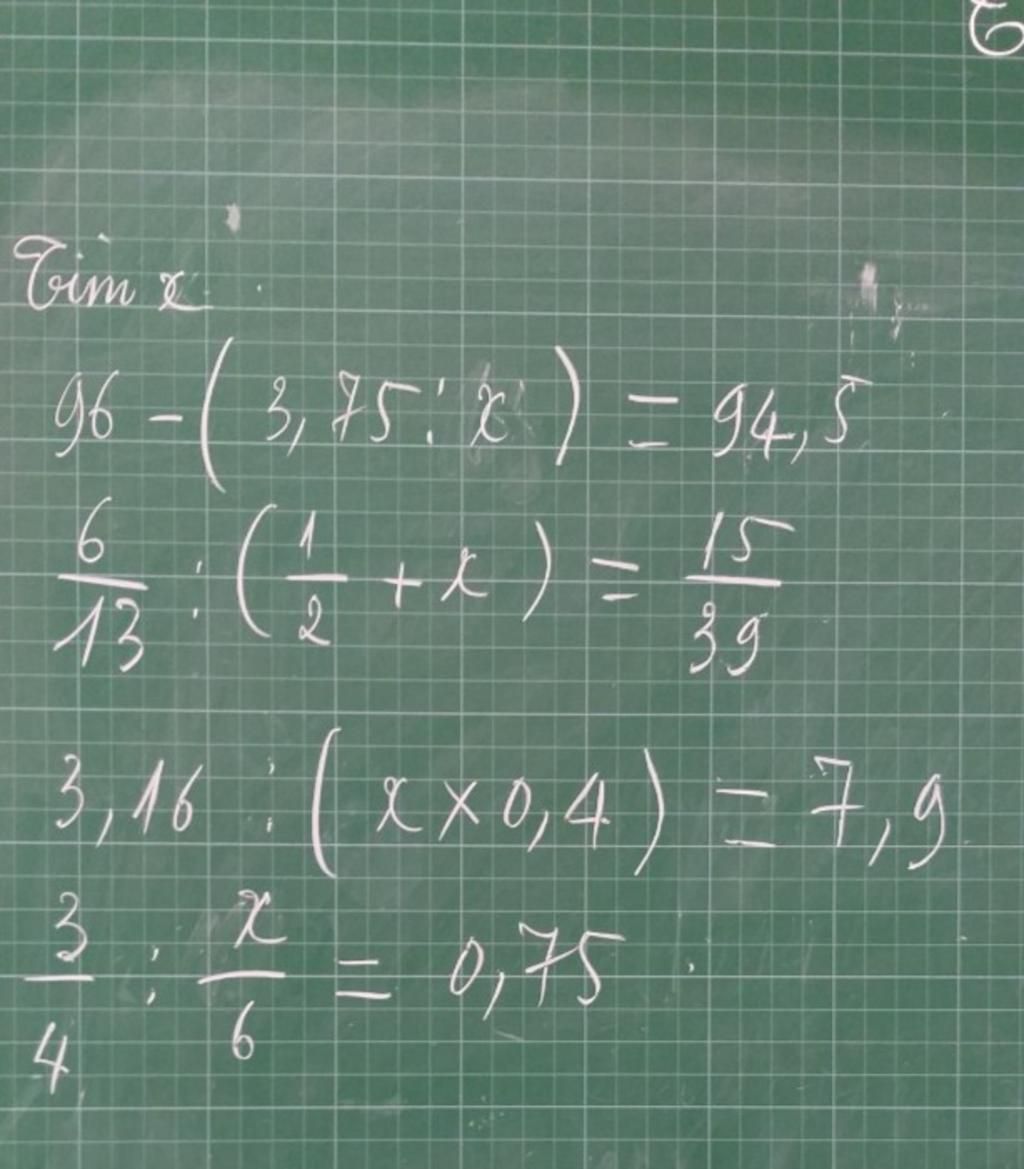 Tìm x
96 - ( 3,75 : x ) = 94,5
6/13 : ( 1/2 + x ) = 15/39
3,16 : ( x × 0,4 ) = 7,9
3/4 : x/6 = 0,75